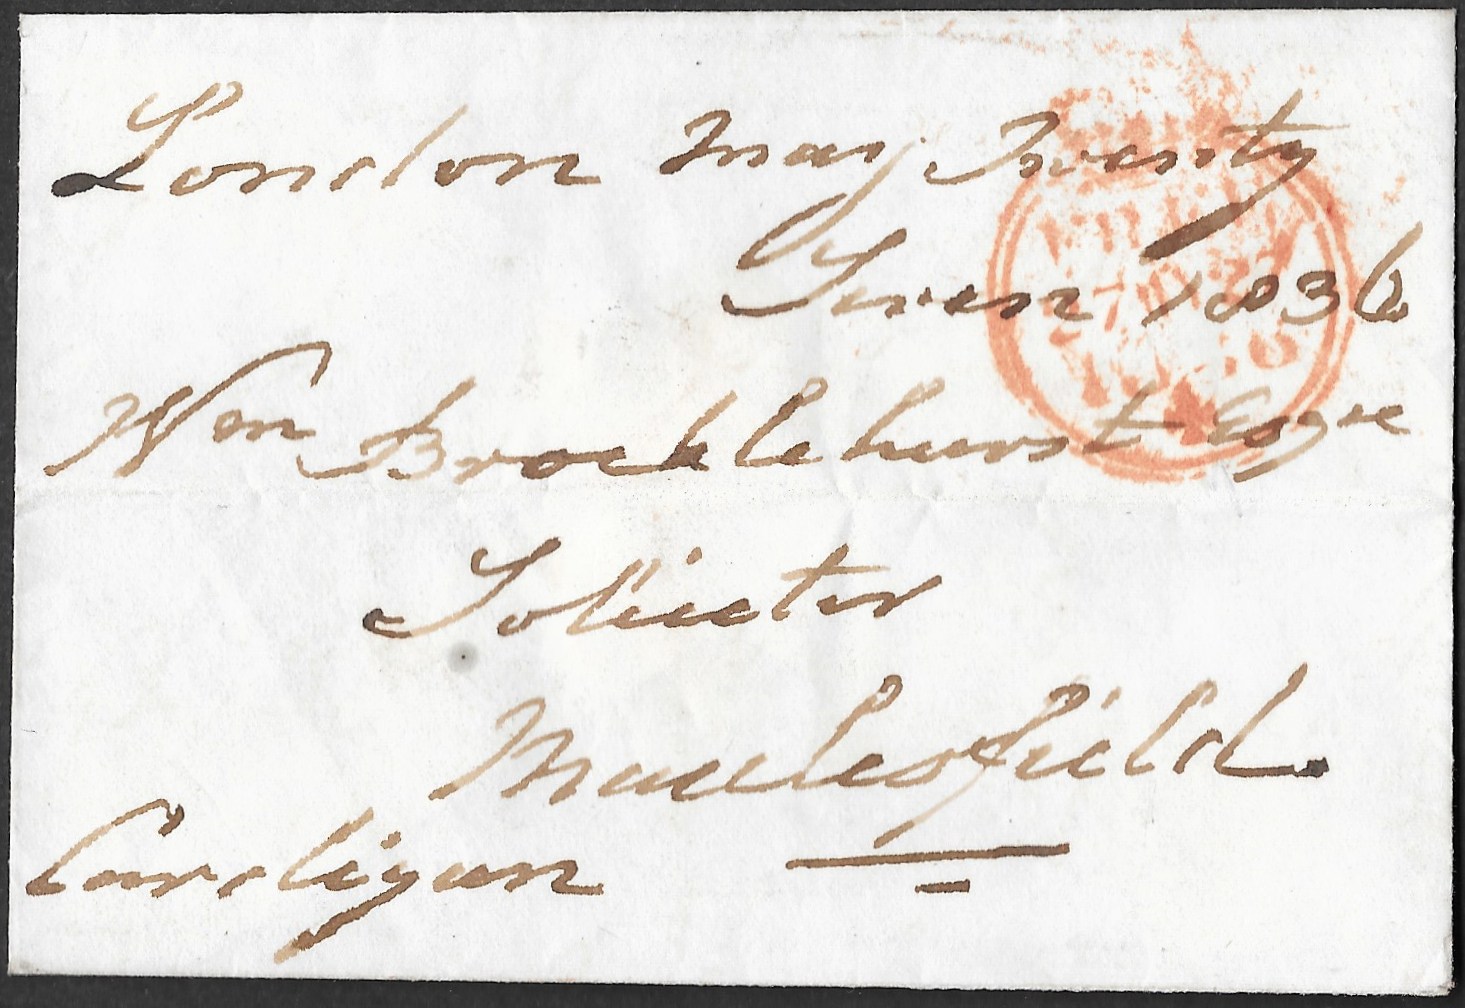 London May Twenty
Seven 1836
Wm Brocklehurst Esqre
Solicitor
Macclesfield.
Cardigan